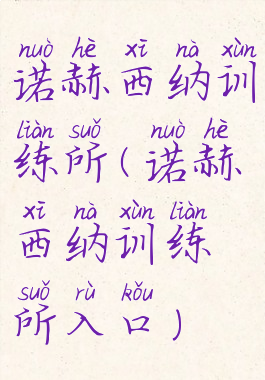 nuò hè xī nà xùn
诺赫西纳训
liàn suǒ nuò hè
练所(诺赫
xī nà xùn liàn
西纳训练
suǒ rù kǒu
所入口)